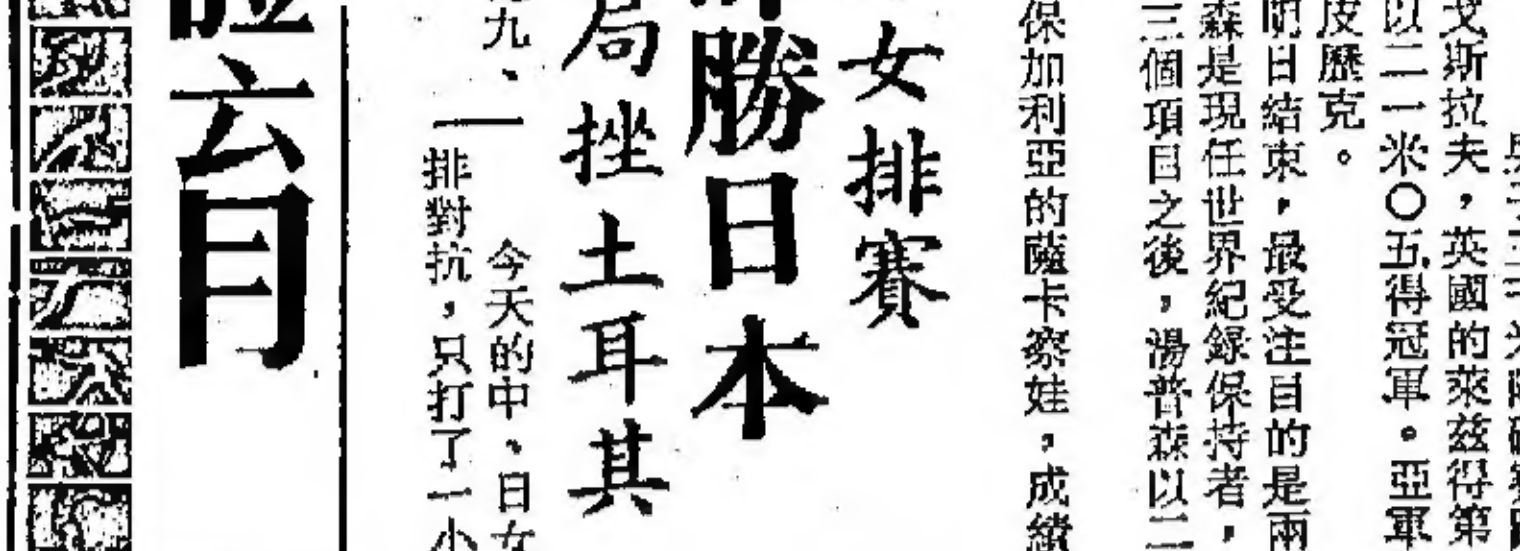 戈斯拉夫，英國的萊茲得第
以二一米〇五得冠軍。亞軍
皮歷克。
明日結束，最受注目的是兩
森是現任世界紀錄保持者，
三個項目之後，湯普森以二
保加利亞的薩卡察娃，成績
女排賽
勝日本
局挫土耳其
今天的中、日女
九、一
排對抗，只打了一小
育